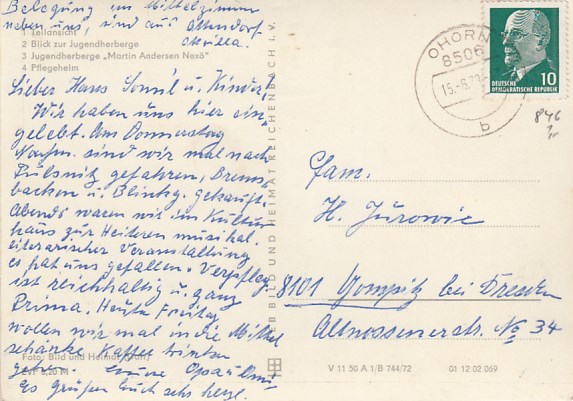 Belegung im Mittelzimm
neben uns, sind aus Ottendorf
Okrilla.
1 Teilansicht
2 Blick zur Jugendherberge
3 Jugendherberge „Martin Andersen Nexö"
4 Pflegeheim
Lieber Hans u. Kinder!
Wir haben uns hier ein-
gelebt. Am Donnerstag
Nachm. sind wir mal nach
Pulsnitz gefahren,
u. gekauft.
Abends waren wir im Kultur
haus zur Heiteren musikal.
literarischer Veranstaltung
es hat uns gefallen. Verpfleg.
ist reichhaltig u. ganz
Prima. Heute Freitag
wollen wir mal in die Mittel
schänke Kaffee trinken
gehen. Opa u. Omi
Es grüßen Euch sehr herzl.
Foto: Bild und Heimat
EVP 0,20 M
VEB BILD UND HEIMAT REICHENBACH i. V.
OHORN
8506
15.-6.
b
10
DEUTSCHE
DEMOKRATISCHE REPUBLIK
846
Fam.
H. Jurowic
8101 Gompitz bei Dresden
Altnossenerstr. No 34
V 11 50 A 1/B 744/72
01 12 02 069